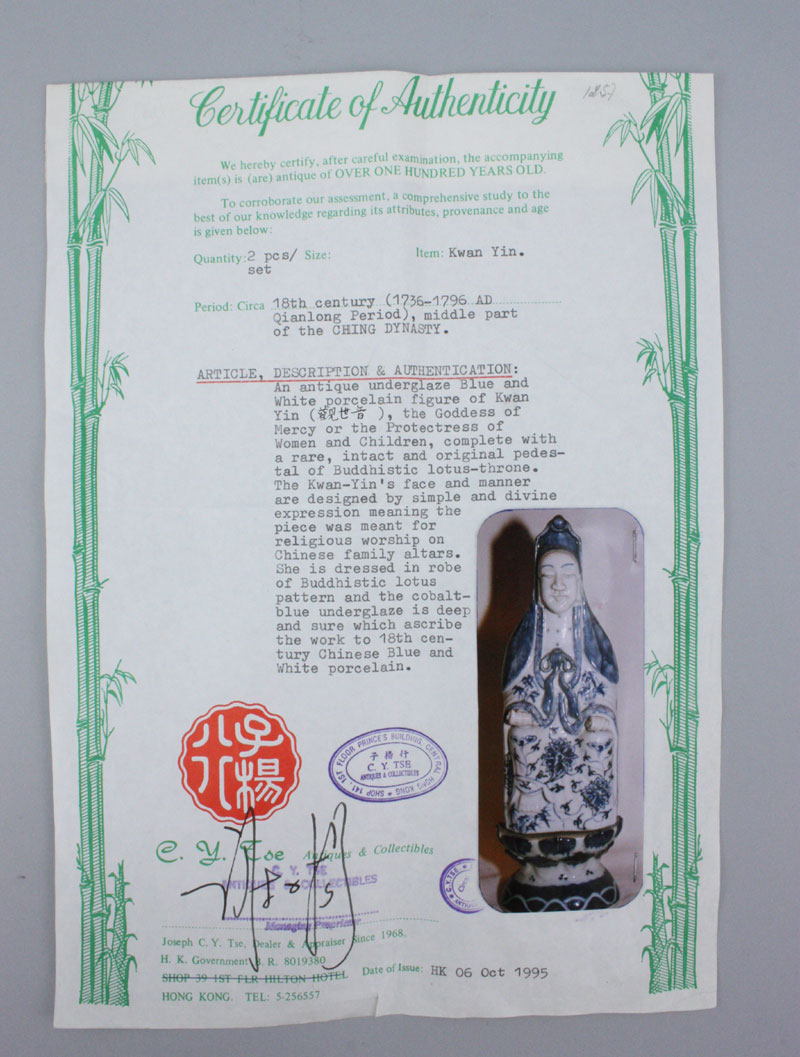 Certificate of Authenticity
We hereby certify, after careful examination, the accompanying
item(s) is (are) antique of OVER ONE HUNDRED YEARS OLD.
To corroborate our assessment, a comprehensive study to the
best of our knowledge regarding its attributes, provenance and age
is given below:
Quantity: 2 pcs/ Size: Item: Kwan Yin.
set
Period: Circa 18th century (1736-1796 AD
Qianlong Period), middle part
of the CHING DYNASTY.
ARTICLE, DESCRIPTION & AUTHENTICATION:
An antique underglaze Blue and
White porcelain figure of Kwan
Yin (观世音), the Goddess of
Mercy or the Protectress of
Women and Children, complete with
a rare, intact and original pedes-
tal of Buddhistic lotus-throne.
The Kwan-Yin's face and manner
are designed by simple and divine
expression meaning the
piece was meant for
religious worship on
Chinese family altars.
She is dressed in robe
of Buddhistic lotus
pattern and the cobalt-
blue underglaze is deep
and sure which ascribe
the work to 18th cen-
tury Chinese Blue and
White porcelain.
子楊行
SHOP 141, 1ST FLOOR PRINCE'S BUILDING, CENTRAL HONG KONG
子楊行
C. Y. TSE
ANTIQUES & COLLECTIBLES
C. Y. Tse Antiques & Collectibles
C. Y. TSE
ANTIQUES & COLLECTIBLES
Managing Proprietor
Joseph C. Y. Tse, Dealer & Appraiser Since 1968.
H. K. Government B. R. 8019380
SHOP 39 1ST FLR HILTON HOTEL
HONG KONG. TEL: 5-256557
Date of Issue: HK 06 Oct 1995